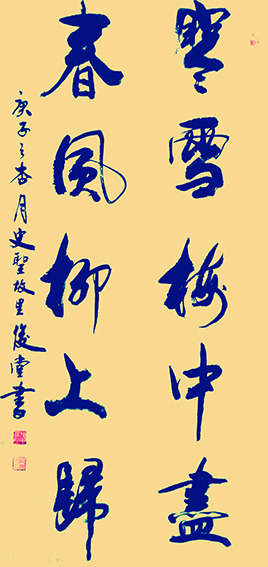 寒雪梅中盡
春風柳上歸
庚子之杏月史聖故里俊堂書